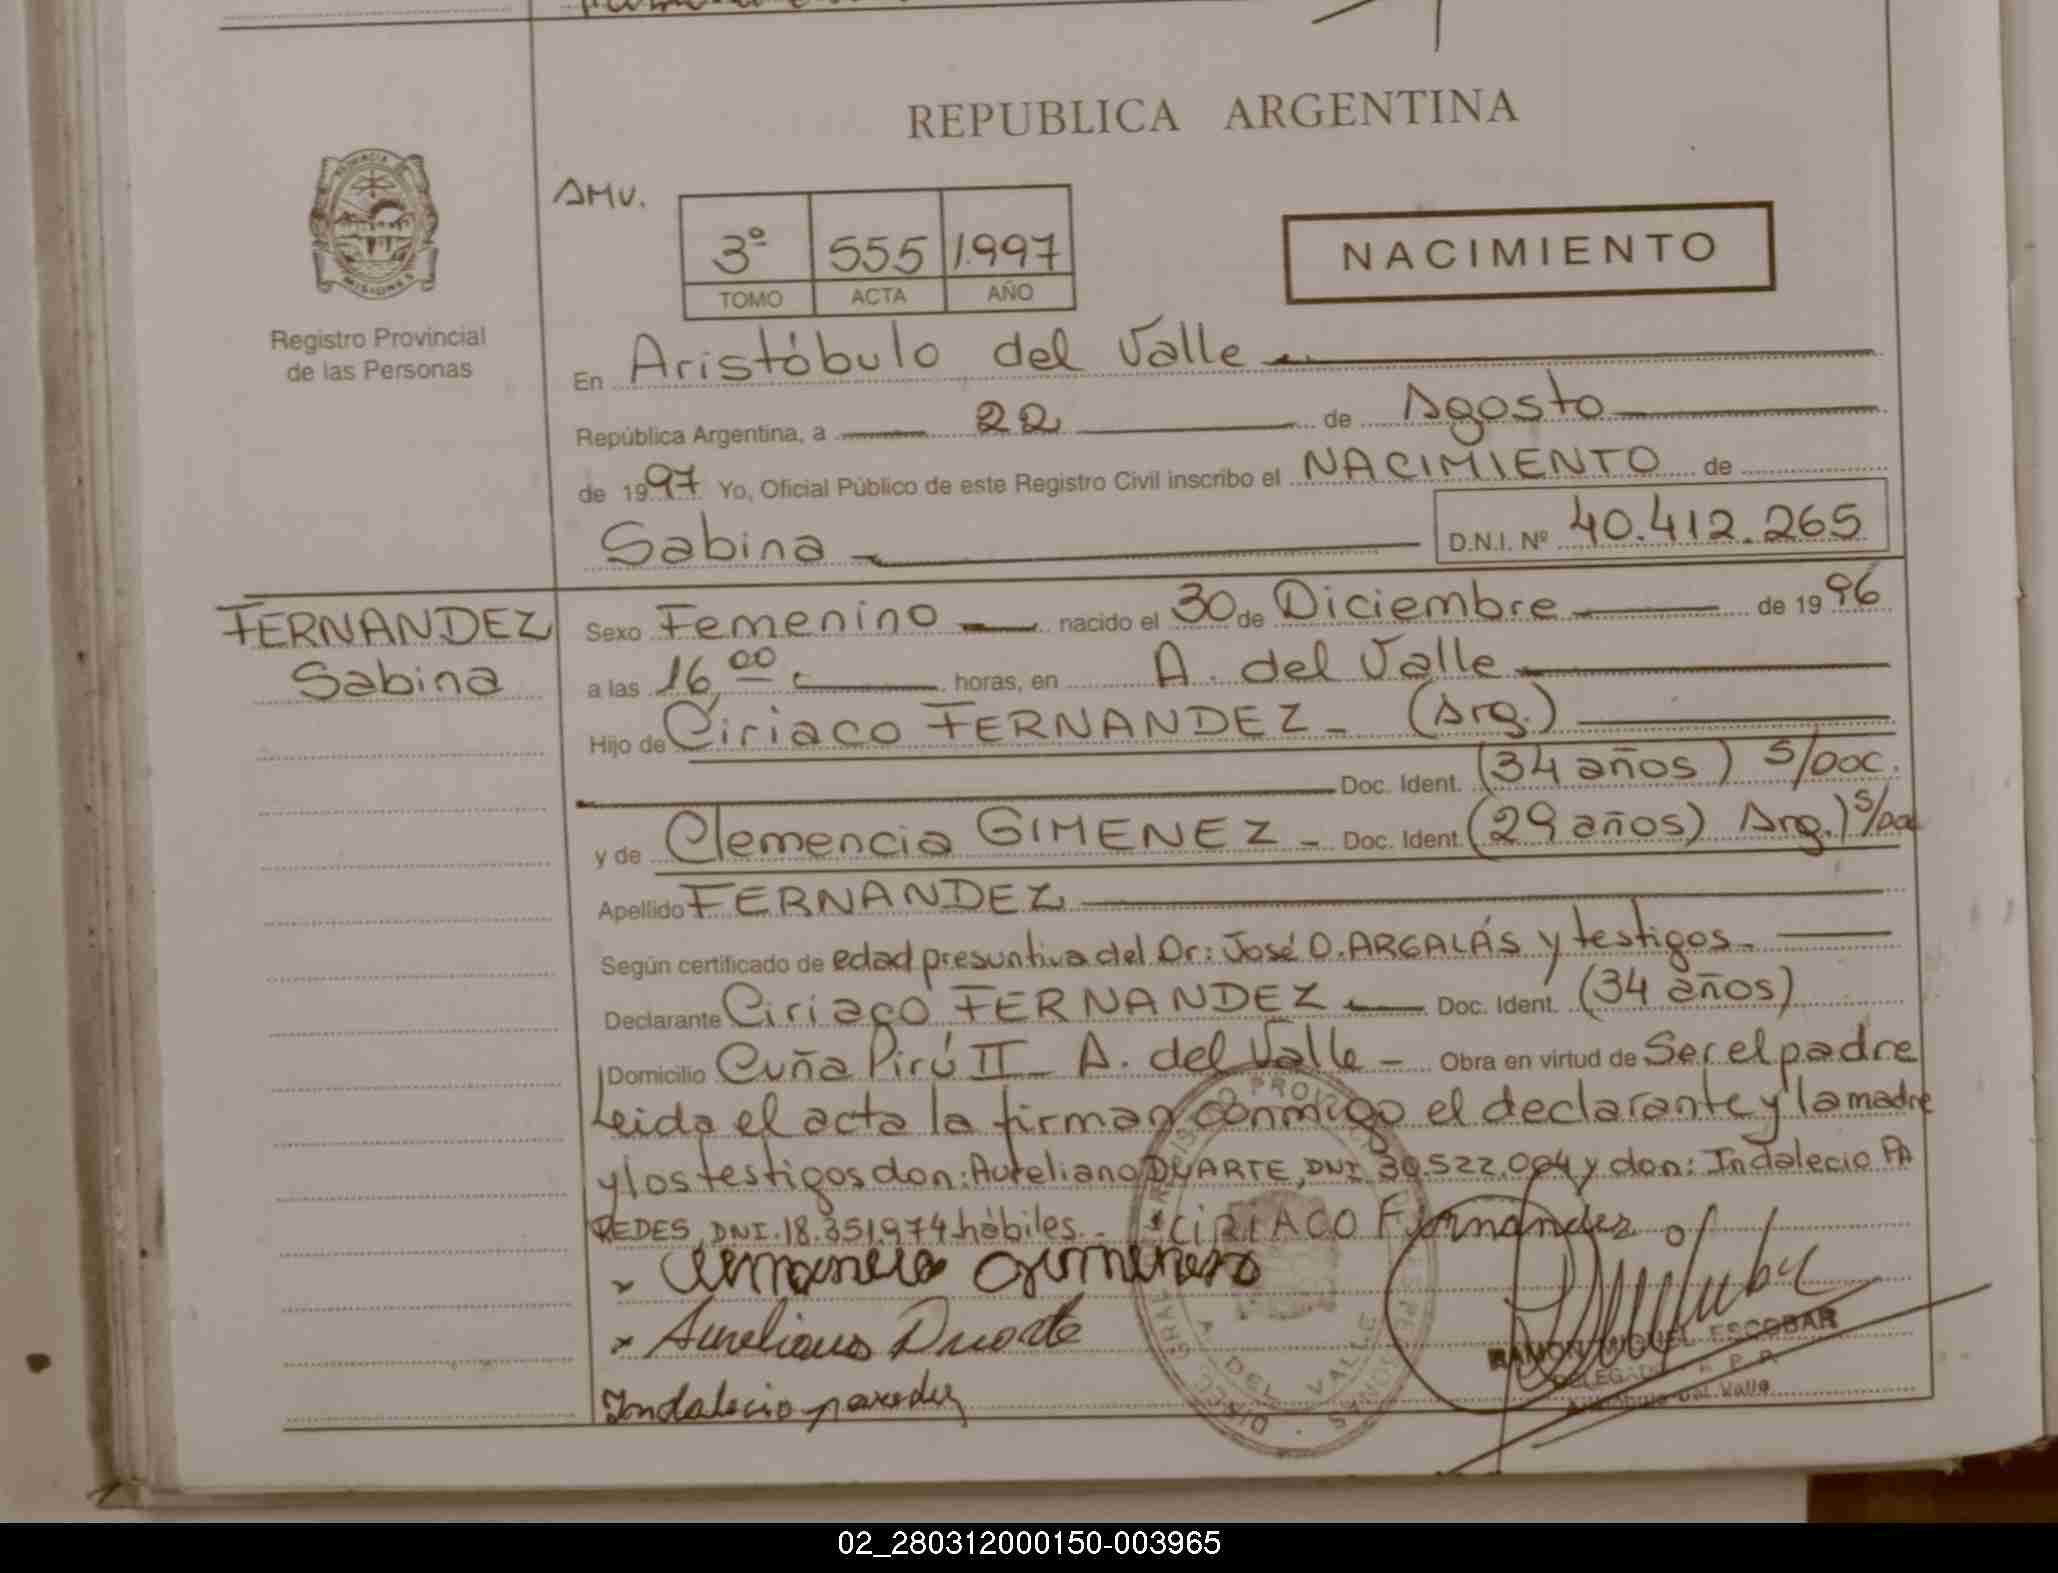 REPUBLICA ARGENTINA
AMV.
3º 555 1.997
TOMO ACTA AÑO
NACIMIENTO
MISIONES
Registro Provincial
de las Personas
En Aristóbulo del Valle
República Argentina, a 22 de Agosto
de 1997 Yo, Oficial Público de este Registro Civil inscribo el NACIMIENTO de
Sabina D.N.I. Nº 40.412.265
FERNANDEZ
Sabina
Sexo Femenino nacido el 30 de Diciembre de 1996
a las 16,00 horas, en A. del Valle
Hijo de Ciriaco FERNANDEZ - (Arg.)
Doc. Ident. (34 años) S/DOC.
y de Clemencia GIMENEZ - Doc. Ident. (29 años) Arg.) S/Doc
Apellido FERNANDEZ
Según certificado de edad presuntiva del Dr: José O. ARGALÁS y testigos -
Declarante Ciriaco FERNANDEZ Doc. Ident. (34 años)
Domicilio Cuña Pirú II - A. del Valle - Obra en virtud de Ser el padre
Leida el acta la firman conmigo el declarante y la madre
y los testigos don: Aureliano DUARTE, DNI. 30.522.004 y don: Indalecio PA
REDES, DNI. 18.351.974 hábiles. - x CIRIACO Fernandez
x Clemencia Gimenez
x Aureliano Duarte
Indalecio paredez
A. DEL VALLE
RAMON MIGUEL ESCOBAR
DELEGADO R.P.P.
Aristóbulo Del Valle
02_280312000150-003965